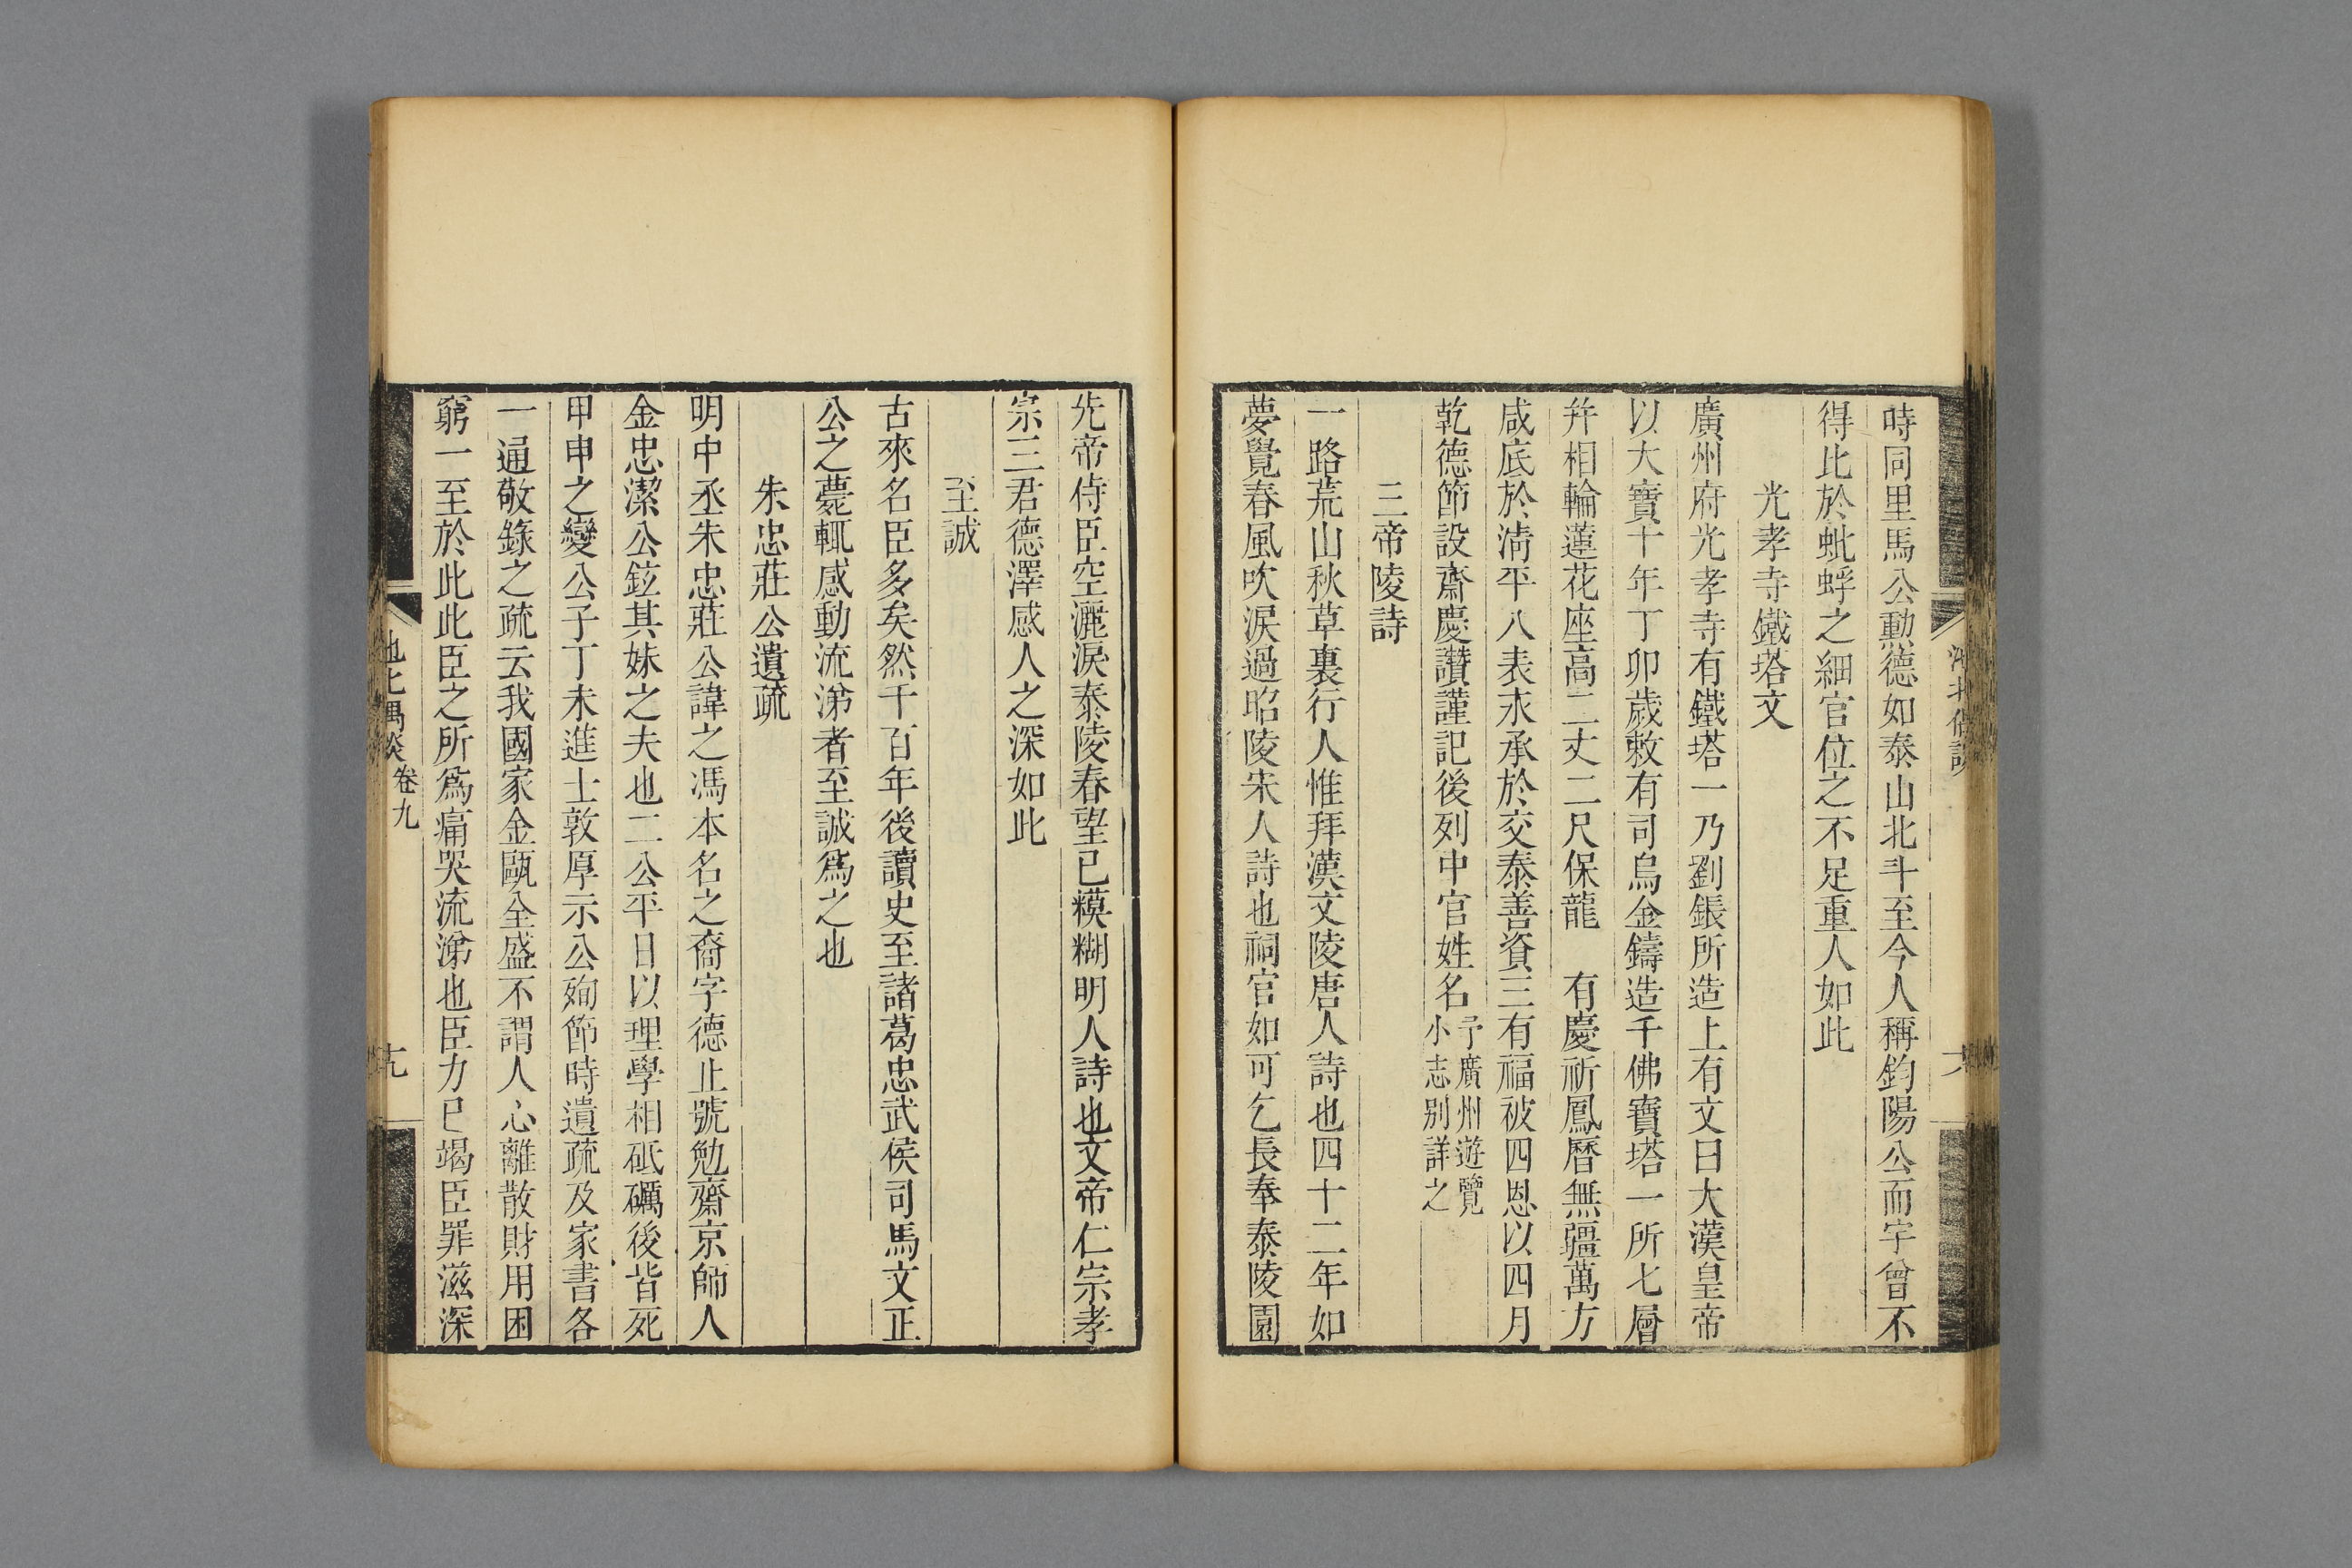 時同里馬公勳德如泰山北斗至今人稱鈞陽公而宇曾不
得比於蚍蜉之細官位之不足重人如此
光孝寺鐵塔文
廣州府光孝寺有鐵塔一乃劉鋹所造上有文曰大漢皇帝
以大寶十年丁卯歲敕有司烏金鑄造千佛寶塔一所七層
并相輪蓮花座高二丈二尺保龍　有慶祈鳳曆無疆萬方
咸底於清平八表永承於交泰善資三有福被四恩以四月
乾德節設齋慶讚謹記後列中官姓名予廣州遊覽
小志别詳之
三帝陵詩
一路荒山秋草裏行人惟拜漢文陵唐人詩也四十二年如
夢覺春風吹淚過昭陵宋人詩也祠官如可乞長奉泰陵園
先帝侍臣空灑淚泰陵春望已糢糊明人詩也文帝仁宗孝
宗三君德澤感人之深如此
至誠
古來名臣多矣然千百年後讀史至諸葛忠武侯司馬文正
公之薨輒感動流涕者至誠爲之也
朱忠莊公遺疏
明中丞朱忠莊公諱之馮本名之裔字德止號勉齋京師人
金忠潔公鉉其妹之夫也二公平日以理學相砥礪後皆死
甲申之變公子丁未進士敦厚示公殉節時遺疏及家書各
一通敬錄之疏云我國家金甌全盛不謂人心離散財用困
窮一至於此此臣之所爲痛哭流涕也臣力已竭臣罪滋深
卷九